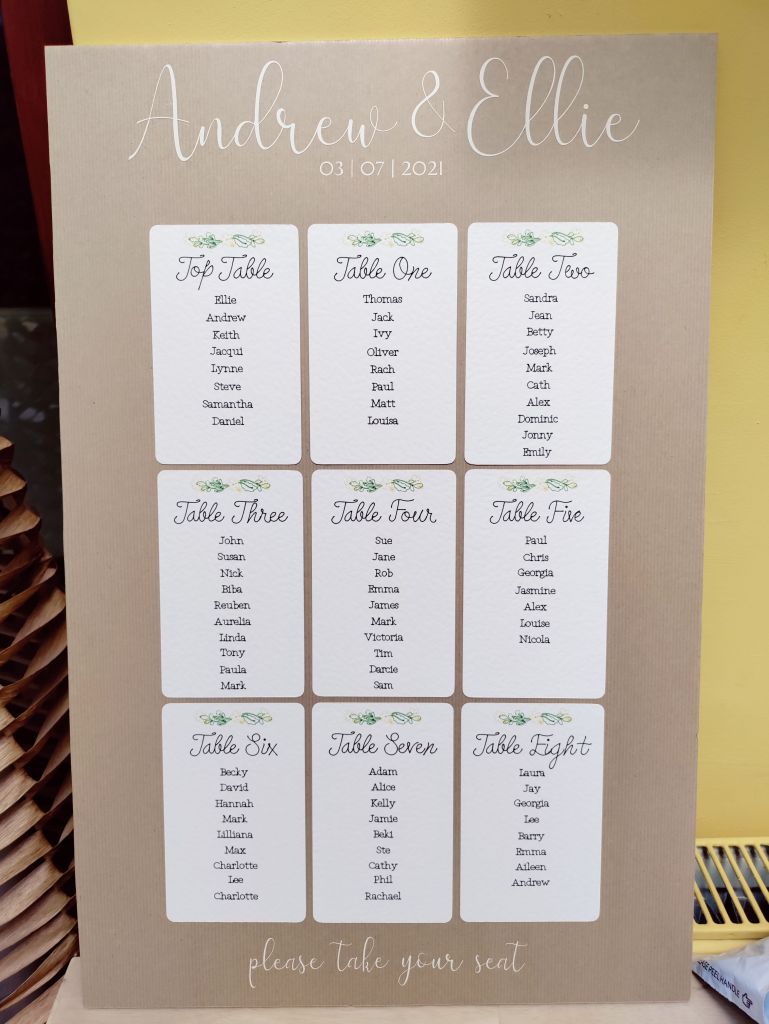 Andrew & Ellie
03 | 07 | 2021
Top Table
Ellie
Andrew
Keith
Jacqui
Lynne
Steve
Samantha
Daniel
Table One
Thomas
Jack
Ivy
Oliver
Rach
Paul
Matt
Louisa
Table Two
Sandra
Jean
Betty
Joseph
Mark
Cath
Alex
Dominic
Jonny
Emily
Table Three
John
Susan
Nick
Biba
Reuben
Aurelia
Linda
Tony
Paula
Mark
Table Four
Sue
Jane
Rob
Emma
James
Mark
Victoria
Tim
Darcie
Sam
Table Five
Paul
Chris
Georgia
Jasmine
Alex
Louise
Nicola
Table Six
Becky
David
Hannah
Mark
Lilliana
Max
Charlotte
Lee
Charlotte
Table Seven
Adam
Alice
Kelly
Jamie
Beki
Ste
Cathy
Phil
Rachael
Table Eight
Laura
Jay
Georgia
Lee
Barry
Emma
Aileen
Andrew
please take your seat
PEEL HANDLE